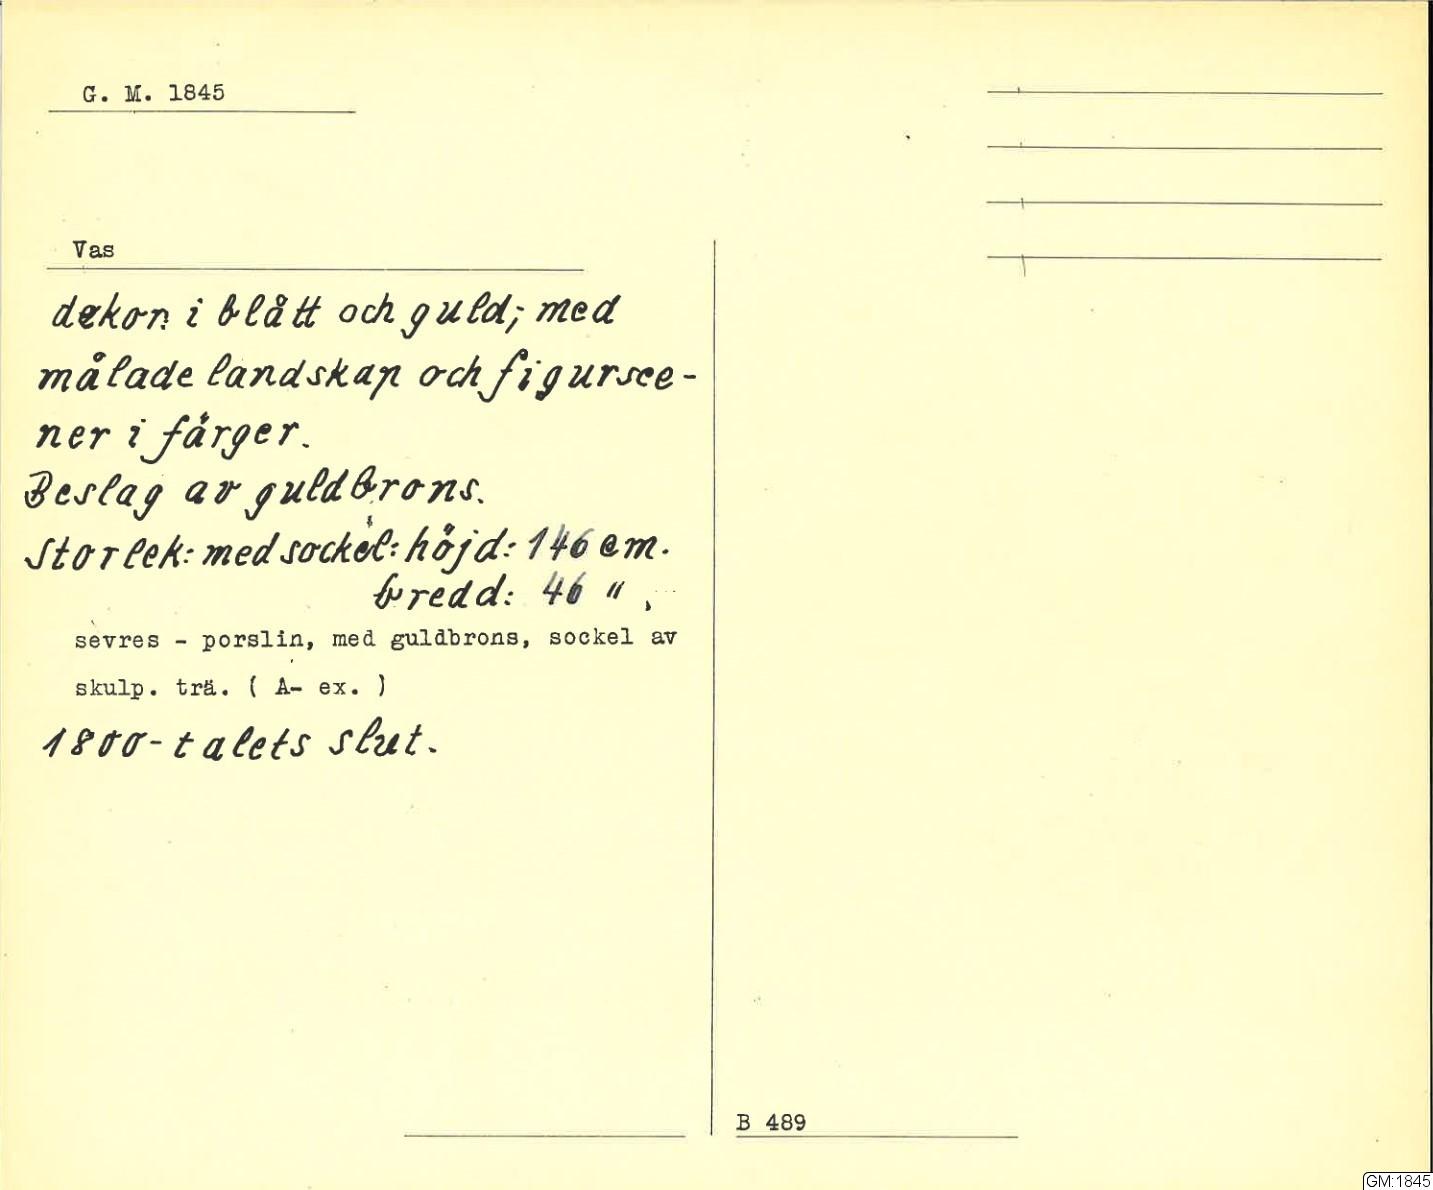 G. M. 1845
Vas
dekor i blått och guld; med
målade landskap och figursce-
ner i färger.
Beslag av guldbrons.
Storlek: med sockel: höjd: 146 cm.
bredd: 46 "
sèvres - porslin, med guldbrons, sockel av
skulp. trä. ( A- ex. )
1800-talets slut.
B 489
GM:1845